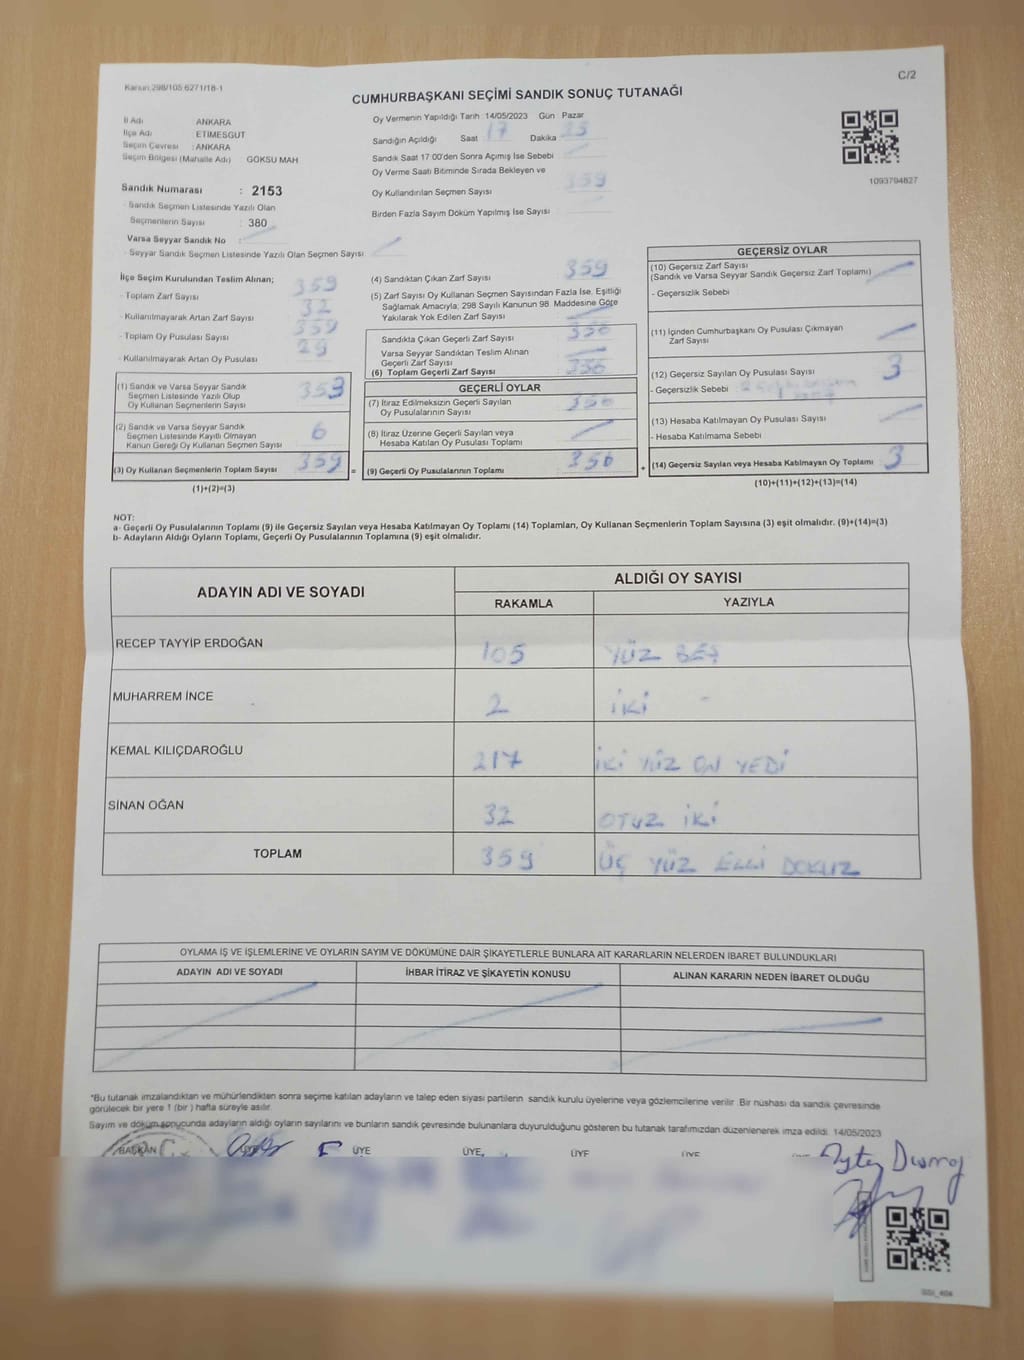 C/2
Kanun:298/105:6271/18-1
CUMHURBAŞKANI SEÇİMİ SANDIK SONUÇ TUTANAĞI
İl Adı : ANKARA
İlçe Adı : ETİMESGUT
Seçim Çevresi : ANKARA
Seçim Bölgesi (Mahalle Adı) GÖKSU MAH
Sandık Numarası : 2153
- Sandık Seçmen Listesinde Yazılı Olan
Seçmenlerin Sayısı : 380
Varsa Seyyar Sandık No :
- Seyyar Sandık Seçmen Listesinde Yazılı Olan Seçmen Sayısı :
Oy Vermenin Yapıldığı Tarih 14/05/2023 Gün Pazar
Sandığın Açıldığı Saat 17 Dakika
Sandık Saat 17:00'den Sonra Açımış İse Sebebi
Oy Verme Saati Bitiminde Sırada Bekleyen ve
Oy Kullandırılan Seçmen Sayısı 359
Birden Fazla Sayım Döküm Yapılmış İse Sayısı
1093794827
İlçe Seçim Kurulundan Teslim Alınan;
- Toplam Zarf Sayısı 359
- Kullanılmayarak Artan Zarf Sayısı 32
- Toplam Oy Pusulası Sayısı 359
- Kullanılmayarak Artan Oy Pusulası 29
(1) Sandık ve Varsa Seyyar Sandık
Seçmen Listesinde Yazılı Olup
Oy Kullanan Seçmenlerin Sayısı 353
(2) Sandık ve Varsa Seyyar Sandık
Seçmen Listesinde Kayıtlı Olmayan
Kanun Gereği Oy Kullanan Seçmen Sayısı 6
(3) Oy Kullanan Seçmenlerin Toplam Sayısı 359 =
(1)+(2)=(3)
(4) Sandıktan Çıkan Zarf Sayısı 359
(5) Zarf Sayısı Oy Kullanan Seçmen Sayısından Fazla İse, Eşitliği
Sağlamak Amacıyla; 298 Sayılı Kanunun 98. Maddesine Göre
Yakılarak Yok Edilen Zarf Sayısı
Sandıkta Çıkan Geçerli Zarf Sayısı 356
Varsa Seyyar Sandıktan Teslim Alınan
Geçerli Zarf Sayısı
(6) Toplam Geçerli Zarf Sayısı 356
GEÇERLİ OYLAR
(7) İtiraz Edilmeksizin Geçerli Sayılan
Oy Pusulalarının Sayısı 356
(8) İtiraz Üzerine Geçerli Sayılan ve
Hesaba Katılan Oy Pusulası Toplamı
(9) Geçerli Oy Pusulalarının Toplamı 356 +
GEÇERSİZ OYLAR
(10) Geçersiz Zarf Sayısı
(Sandık ve Varsa Seyyar Sandık Geçersiz Zarf Toplamı)
- Geçersizlik Sebebi :
(11) İçinden Cumhurbaşkanı Oy Pusulası Çıkmayan
Zarf Sayısı
(12) Geçersiz Sayılan Oy Pusulası Sayısı 3
- Geçersizlik Sebebi :
(13) Hesaba Katılmayan Oy Pusulası Sayısı
- Hesaba Katılmama Sebebi
(14) Geçersiz Sayılan veya Hesaba Katılmayan Oy Toplamı 3
(10)+(11)+(12)+(13)=(14)
NOT:
a- Geçerli Oy Pusulalarının Toplamı (9) ile Geçersiz Sayılan veya Hesaba Katılmayan Oy Toplamı (14) Toplamları, Oy Kullanan Seçmenlerin Toplam Sayısına (3) eşit olmalıdır. (9)+(14)=(3)
b- Adayların Aldığı Oyların Toplamı, Geçerli Oy Pusulalarının Toplamına (9) eşit olmalıdır.
ADAYIN ADI VE SOYADI ALDIĞI OY SAYISI
RAKAMLA YAZIYLA
RECEP TAYYİP ERDOĞAN 105 YÜZ BEŞ
MUHARREM İNCE 2 İKİ
KEMAL KILIÇDAROĞLU 217 İKİ YÜZ ON YEDİ
SİNAN OĞAN 32 OTUZ İKİ
TOPLAM 359 ÜÇ YÜZ ELLİ DOKUZ
OYLAMA İŞ VE İŞLEMLERİNE VE OYLARIN SAYIM VE DÖKÜMÜNE DAİR ŞİKAYETLERLE BUNLARA AİT KARARLARIN NELERDEN İBARET BULUNDUKLARI
ADAYIN ADI VE SOYADI İHBAR İTİRAZ VE ŞİKAYETİN KONUSU ALINAN KARARIN NEDEN İBARET OLDUĞU
"Bu tutanak imzalandıktan ve mühürlendikten sonra seçime katılan adayların ve talep eden siyasi partilerin sandık kurulu üyelerine veya gözlemcilerine verilir. Bir nüshası da sandık çevresinde
görülecek bir yere 1 (bir ) hafta süreyle asılır.
Sayım ve döküm sonucunda adayların aldığı oyların sayılarını ve bunların sandık çevresinde bulunanlara duyurulduğunu gösteren bu tutanak tarafımızdan düzenlenerek imza edildi. 14/05/2023
BAŞKAN ÜYE ÜYE ÜYE ÜYE